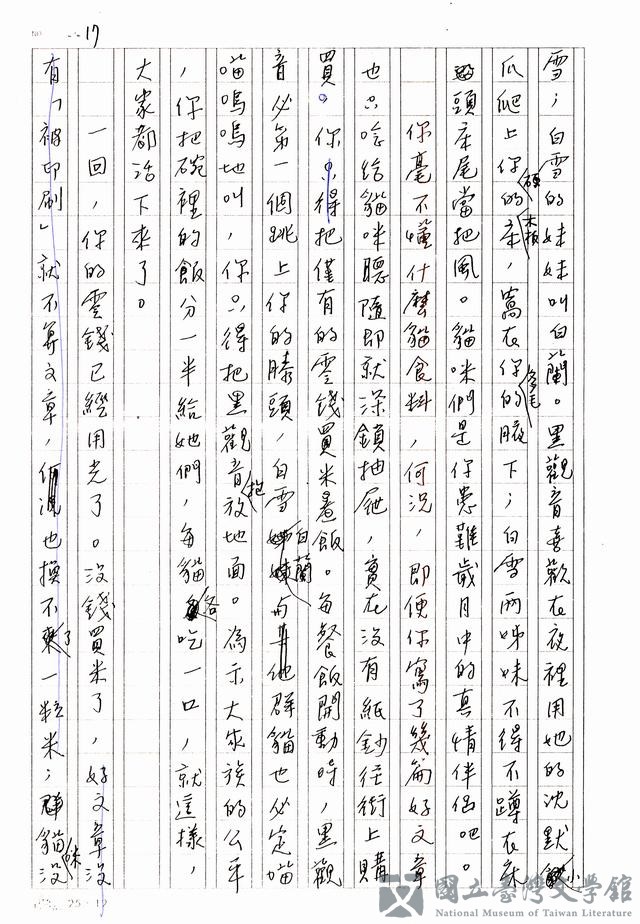 17
雪；白雪的妹妹叫白蘭。黑觀音喜歡在夜裡用她的沈默小
爪爬上你的硬木板床，窩在你的多毛腋下；白雪兩姊妹不得不蹲在床
頭床尾當把風。貓咪們是你患難歲月中的真情伴侶吧。
你毫不懂什麼貓食料，何況，即便你寫了幾篇好文章
也只唸給貓咪聽隨即就深鎖抽屜，實在沒有紙鈔往街上購
買。你得把僅有的零錢買米煮飯。每餐飯開動時，黑觀
音必第一個跳上你的膝頭，白雪白蘭與其他群貓也必定喵
喵嗚嗚地叫，你只得把黑觀音抱放地面。為示大家族的公平
，你把碗裡的飯分一半給她們，每貓各吃一口，就這樣，
大家都活下來了。
一回，你的零錢已經用光了。沒錢買米了，好文章沒
有「被印刷」就不算文章，也換不了一粒米；群貓咪沒
25
國立臺灣文學館
National Museum of Taiwan Literature